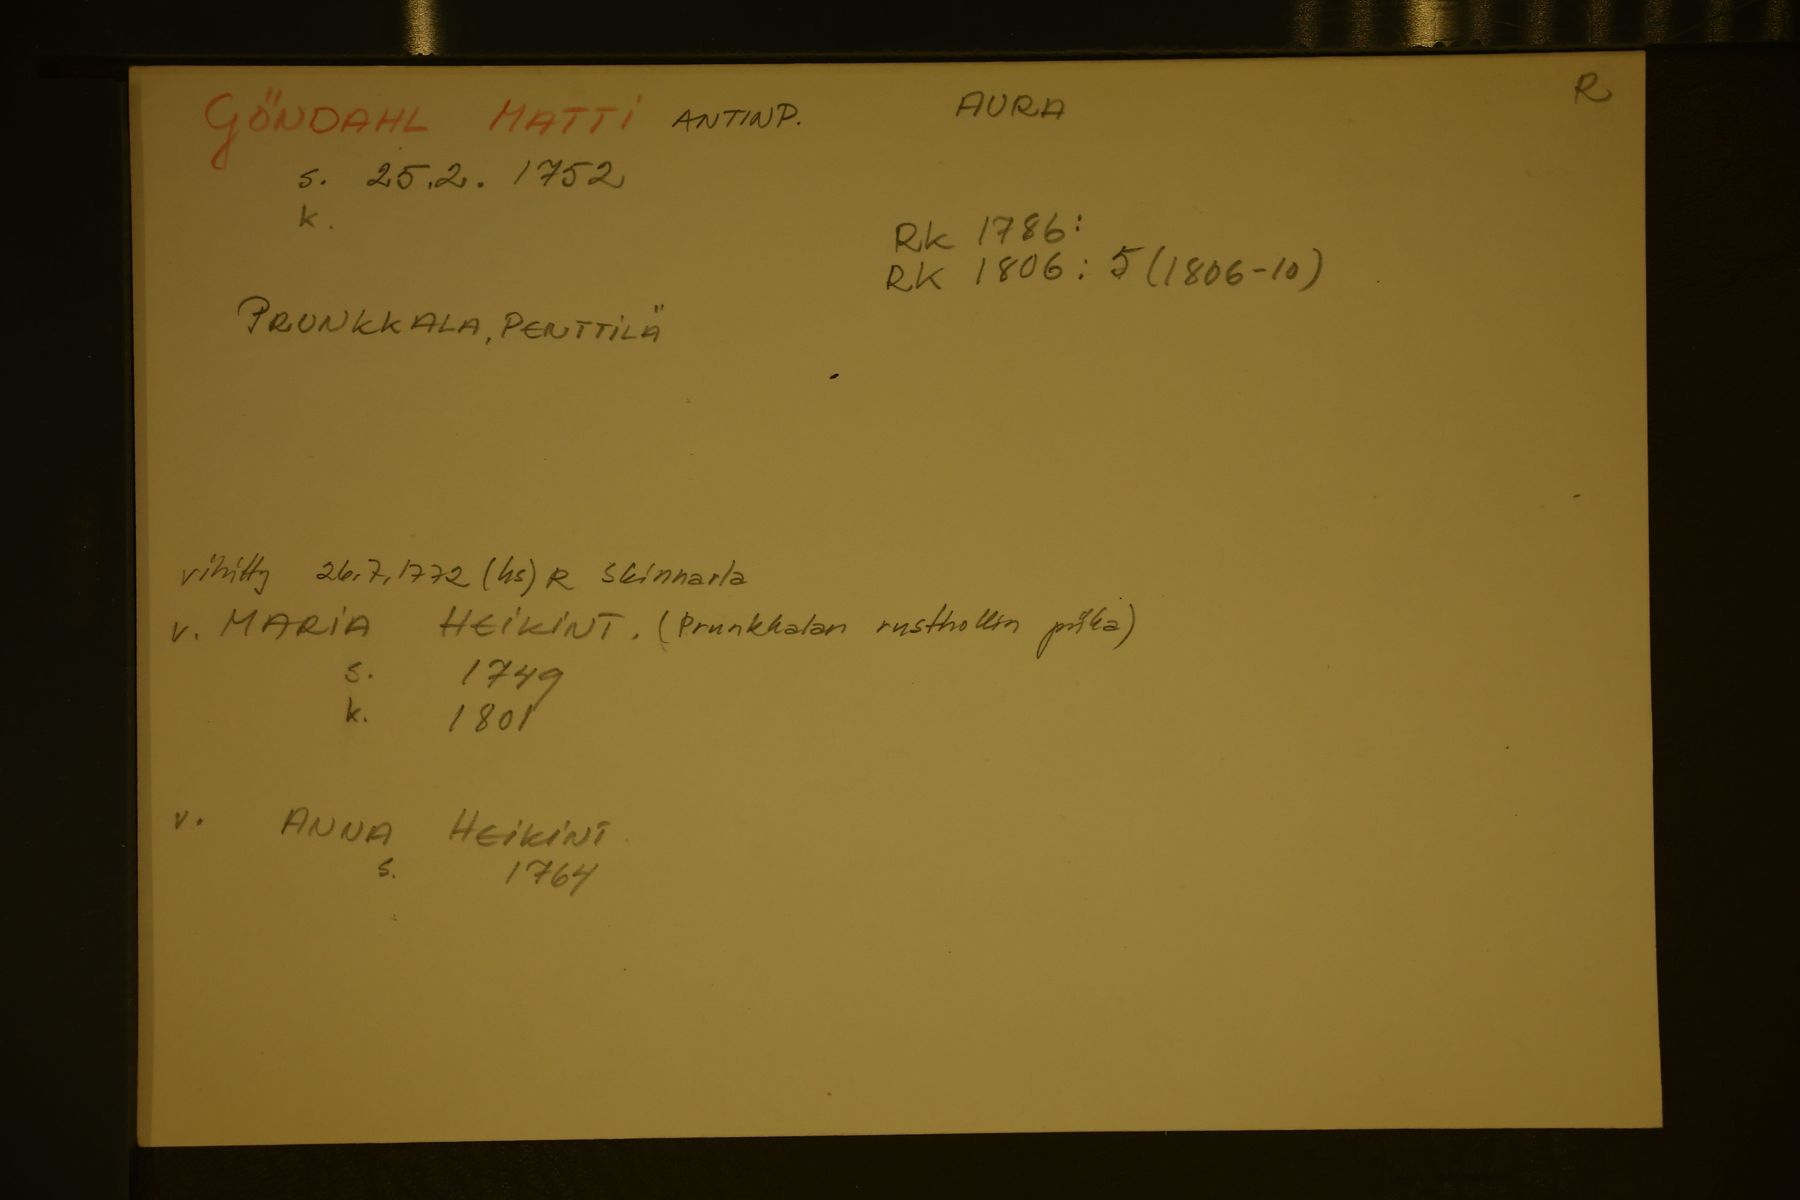 GÖNDAHL MATTI ANTINP. AURA R
s. 25.2. 1752
k.
RK 1786:
RK 1806: 5 (1806-10)
PRUNKKALA, PENTTILÄ
vihitty 26.7.1772 (hs) R Skinnarla
v. MARIA HEIKINT. (Prunkkalan rusthollin piika)
s. 1749
k. 1801
v. ANNA HEIKINT
s. 1764